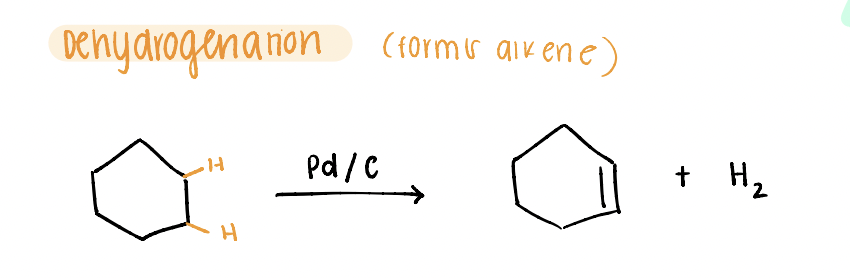 Dehydrogenation (forms alkene)
H
Pd/C
+ H₂
H